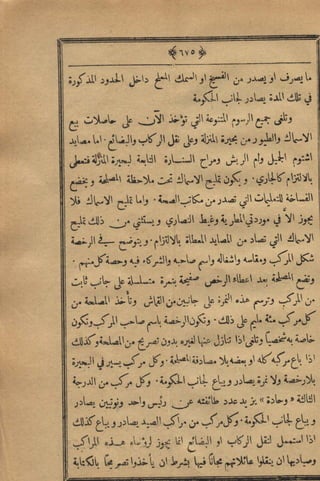 ﴿ ٦٧٥ ﴾
ما يصرف او يصدر من الفسيخ او السمك المملح داخل الحدود المذكورة
في تلك المدة يصادر لجانب الحكومة
وتلغى جميع الرسوم المتنوعة التي تؤخذ الآن على حاصلات بيع
الاسماك والطيور من بحيرة المنزلة وعلى نقل الركاب والبضائع . اما مصايد
اشتوم الجميل وام الريش ومراح السنارة التابعة لبحيرة المنزلة فتعطى
بالالتزام كالجاري . ويكون تمليح الاسماك تحت ملاحظة المصلحة ويخضع
الفساخة للتعليمات التي تصدر من مكاتب الصحة . واما تمليح الاسماك فلا
يجوز الا في موردتي المطرية وغيط النصارى ويستثنى من ذلك تمليح
الاسماك التي تصاد من المصايد المعطاة بالالتزام . ويتوضح في الرخصة
شكل المركب ومقاسه واشغاله واسم صاحبه والشركاء فيه وحصة كل منهم .
وتضع المصلحة بعد اعطاه الرخص صفيحة بنمرة متسلسلة على جانب ثابت
من المركب وترسم هذه النمرة على جانبين من القماش وتأخذ المصلحة من
كل مركب مئة مليم على ذلك . وتكون الرخصة باسم صاحب المركب وتكون
خاصة به شخصياً وتلغى اذا تنازل عنها لغيره بدون تصريح من المصلحة وكذلك
اذا باع مركبه كله او بعضه بلا مصادقة المصلحة . وكل مركب يسير في البحيرة
بلا رخصة ولا نمرة يصادر ويباع لجانب الحكومة . وكل مركب من الدرجة
الثالثة « وحادة » يزيد عدد طائفته عن رئيس واحد ونوتيين يصادر
و يباع لجانب الحكومة . وكل مركب من مراكب الصيد يصادر ويباع كذلك
اذا استعمل لنقل الركاب او البضائع انما يجوز لرؤساء هذه المراكب
وصياديها ان ينقلوا عائلاتهم مجاناً فيها بشرط ان يأخذوا تصريحاً بالكتابة